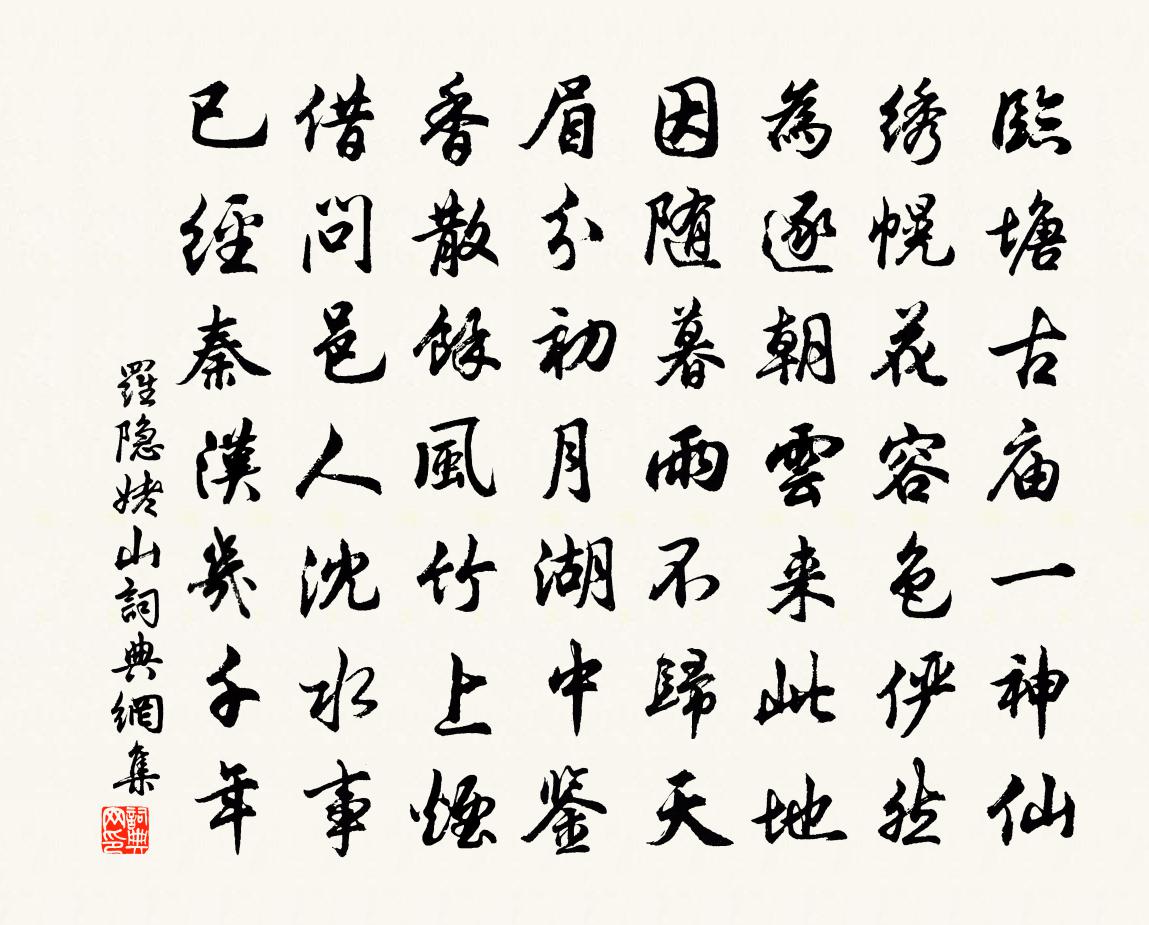 臨塘古庙一神仙
绣幌花容色俨然
為逐朝雲来此地
因随暮雨不歸天
眉分初月湖中鉴
香散餘風竹上煙
借問邑人沈水事
已經秦漢幾千年
羅隐姥山詞典網集
詞典网印